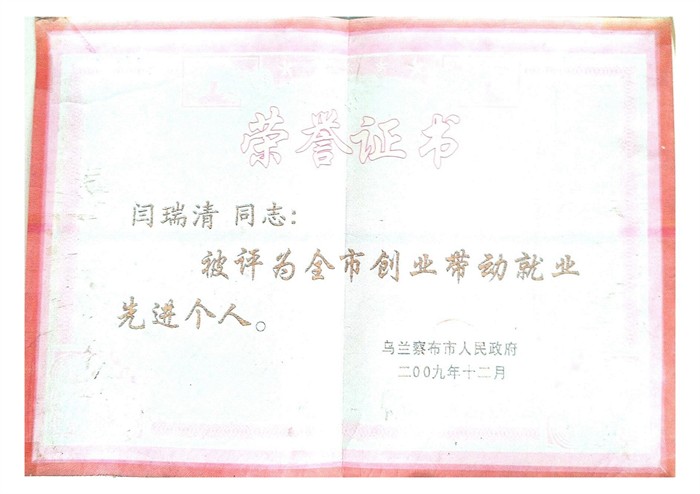 荣誉证书
闫瑞清 同志:
被评为全市创业带动就业
先进个人。
乌兰察布市人民政府
二00九年十二月